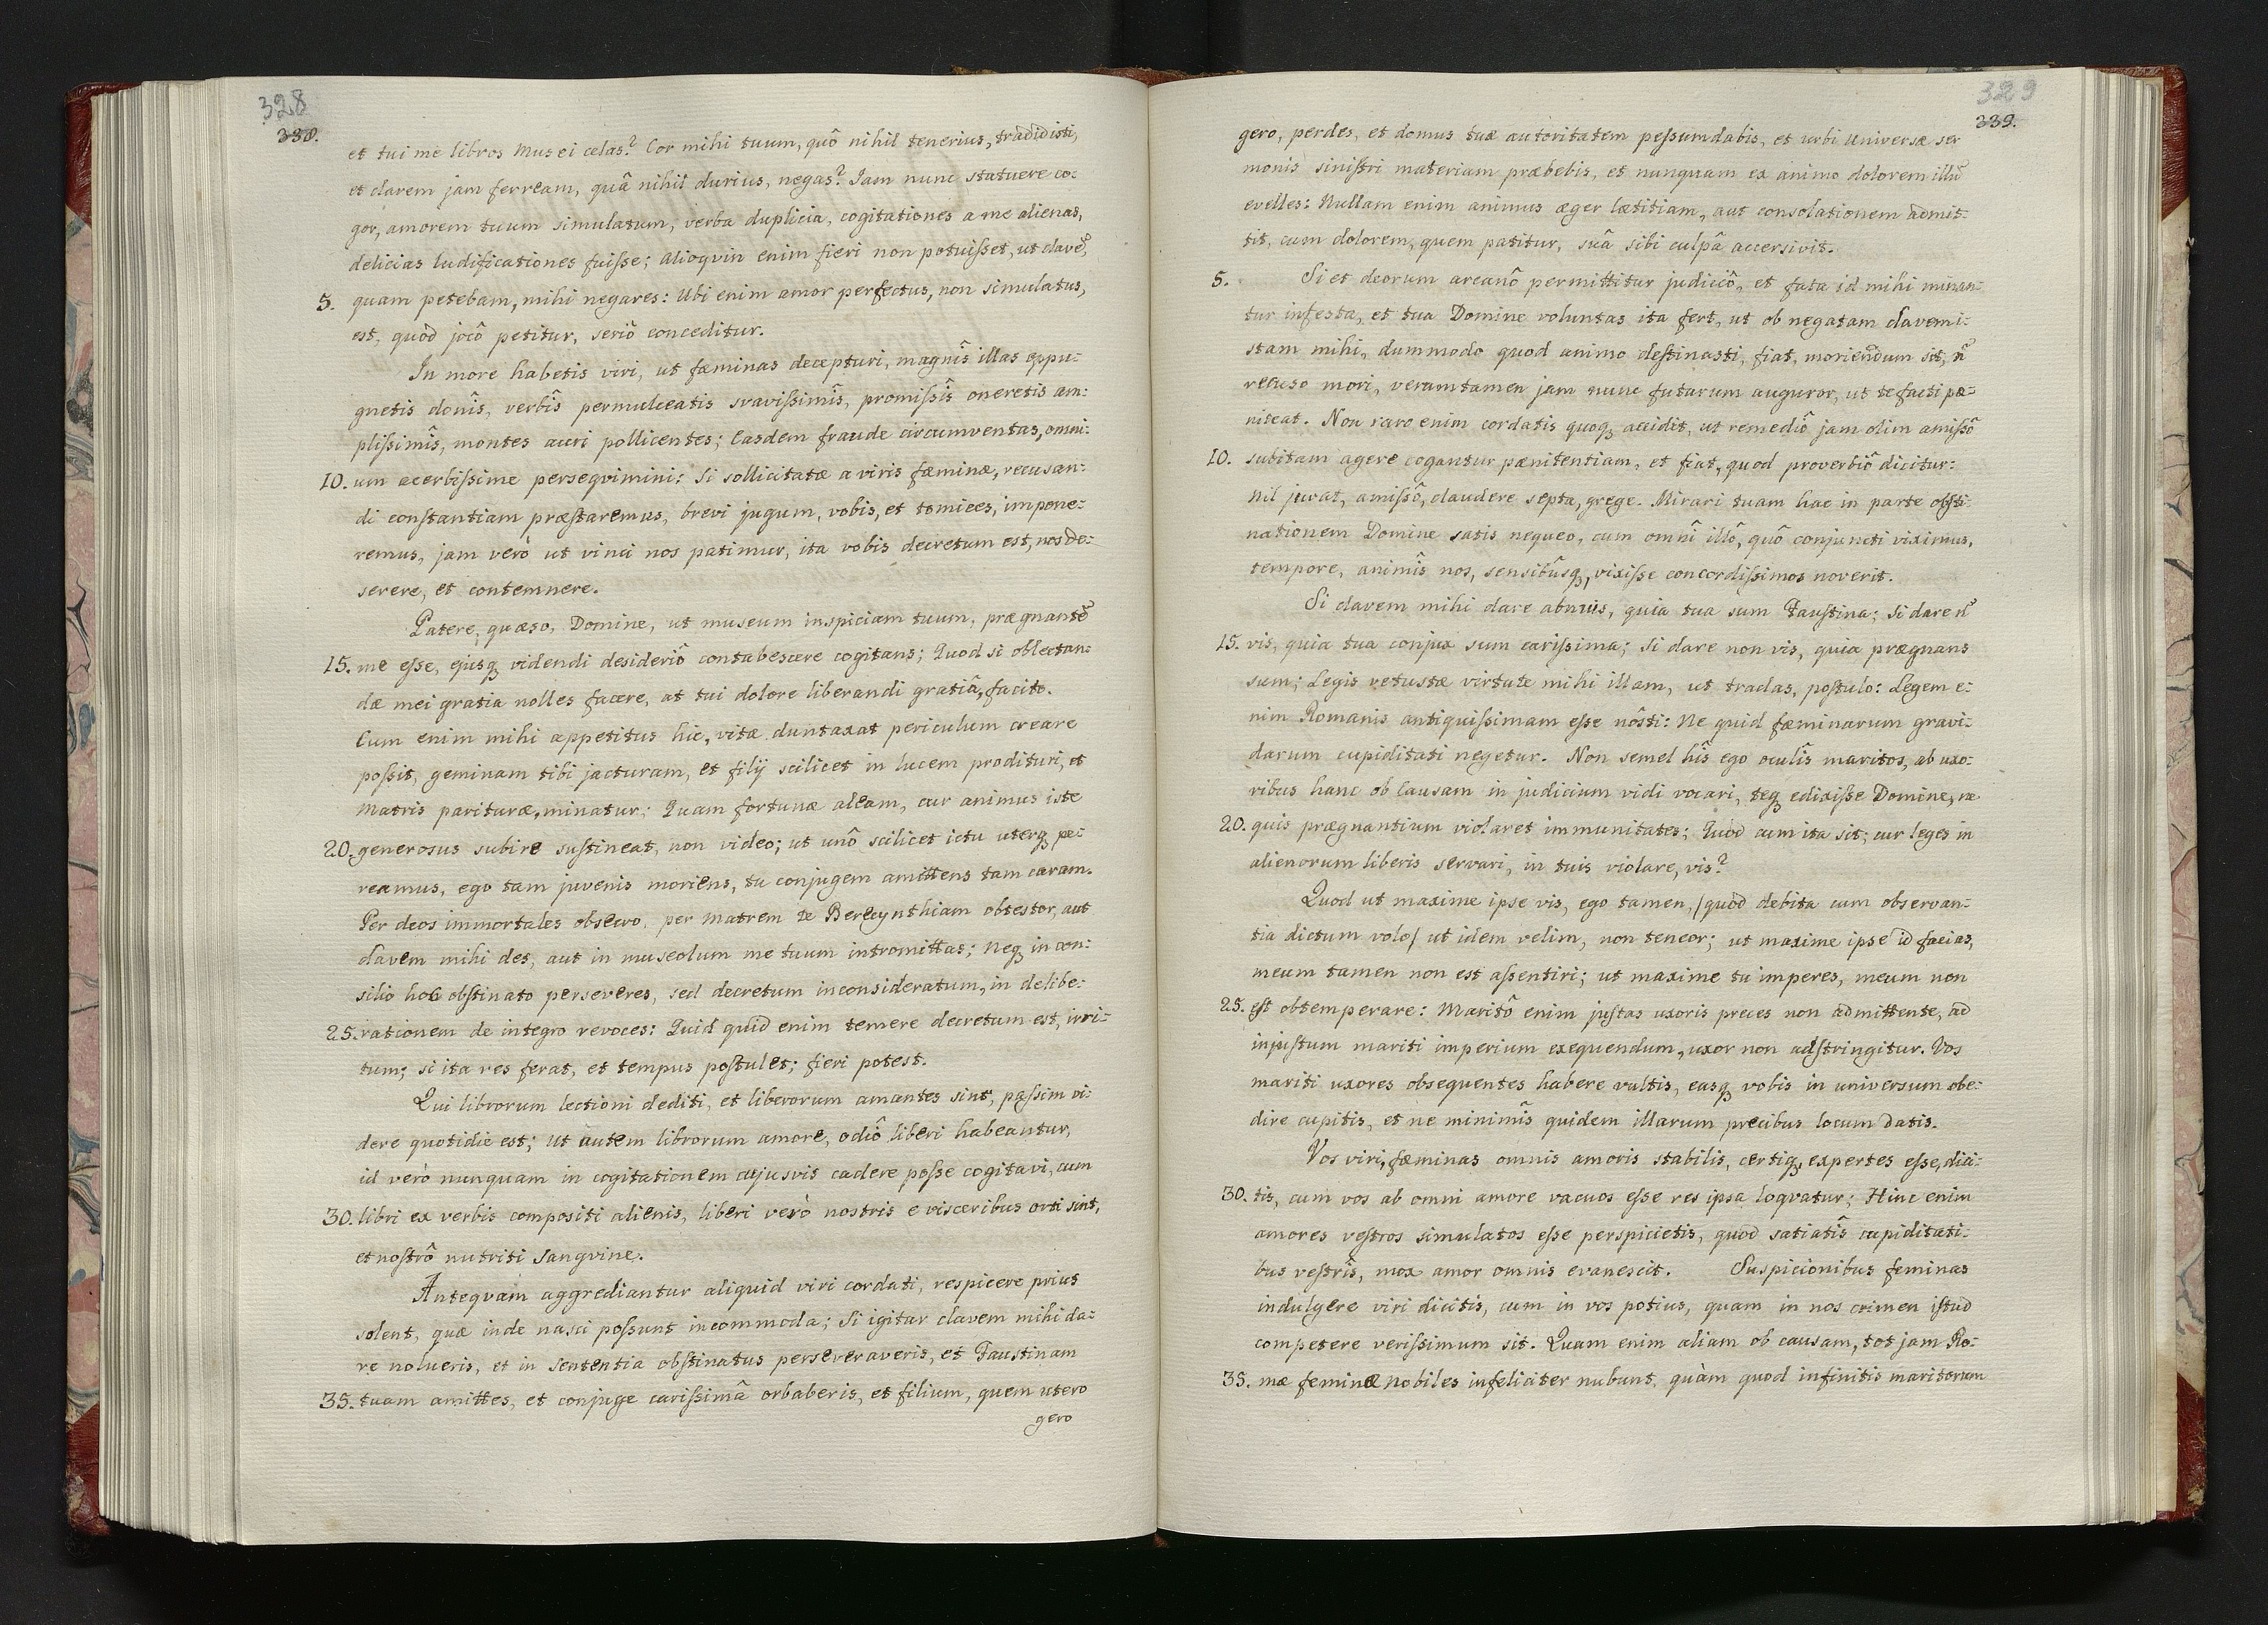 328
338.
et tui me libros Musei celas? Cor mihi tuum, quô nihil tenerius, tradidisti,
et clavem jam ferream, quâ nihil durius, negas? Jam nunc statuere co:
gor, amorem tuum simulatum, verba duplicia, cogitationes a me alienas,
delicias ludificationes fuiſse; alioqvin enim fieri non potuiſset, ut clavē,
5. quam petebam, mihi negares: Ubi enim amor perfectus, non simulatus,
est, quòd jocô petitur, seriô conceditur.
In more habetis viri, ut fæminas decepturi, magnîs illas oppu:
gnetis donîs, verbîs permulceatis svaviſsimîs, promiſsîs oneretis am:
pliſsimîs, montes auri pollicentes; Easdem fraude circumventas, omni:
10. um acerbiſsime perseqvimini: Si sollicitatæ a viris fæminæ, recusan:
di conſtantiam præſtaremus, brevi jugum, vobis, et tomices, impone:
remus, jam verò ut vinci nos patimur, ita vobis decretum est, nos de:
serere, et contemnere.
Patere, quæso, Domine, ut museum inspiciam tuum, prægnantē
15. me eſse, ejusq videndi desideriô contabescere cogitans; Quod si oblectan:
dæ mei gratia nolles facere, at tui dolore liberandi gratiâ, facito.
Cum enim mihi appetitus hic, vitæ duntaxat periculum creare
poſsit, geminam tibi jacturam, et filij scilicet in lucem prodituri, et
Matris parituræ, minatur; Quam fortunæ aleam, cur animus iste
20. generosus subire suſtineat, non video; ut unô scilicet ictu uterq pe:
reamus, ego tam juvenis moriens, tu conjugem amittens tam caram.
Per deos immortales obsecro, per Matrem te Berecynthiam obtestor, aut
clavem mihi des, aut in museolum me tuum intromittas; Neq in con:
silio hoc obſtinato perseveres, sed decretum inconsideratum, in delibe:
25. rationem de integro revoces: Quid quid enim temere decretum est, irri:
tum; si ita res ferat, et tempus poſtulet; fieri potest.
Qui librorum lectioni dediti, et liberorum amantes sint, paſsim vi:
dere quotidie est; Ut autem librorum amore, odiô liberi habeantur,
id verò nunquam in cogitationem cujusvis cadere poſse cogitavi, cum
30. libri ex verbis compositi alienis, liberi verò nostris e visceribus orti sint,
et noſtrô nutriti sangvine.
Anteqvam aggrediantur aliquid viri cordati, respicere prius
solent, quæ inde nasci poſsunt incommoda; Si igitur clavem mihi da:
re nolueris, et in sententia obſtinatus perseveraveris, et Faustinam
35. tuam amittes, et conjuge cariſsimâ orbaberis, et filium, quem utero
gero
329
339.
gero, perdes, et domus tuæ autoritatem peſsumdabis, et urbi Universæ ser
monis siniſtri materiam præbebis, et nunquam ex animo dolorem illū
evelles: Nullam enim animus æger lætitiam, aut consolationem admit:
tit, cum dolorem, quem patitur, suâ sibi culpâ accersivit.
5. Si et deorum arcanô permittitur judiciô, et fata id mihi minan:
tur infesta, et tua Domine voluntas ita fert, ut ob negatam clavem i:
stam mihi, dummodo quod animo deſtinasti, fiat, moriendum sit, ñ
recuso mori, verumtamen jam nunc futurum auguror, ut te facti pæ:
niteat. Non raro enim cordatis quoq accidit, ut remediô jam olim amiſsô
10. subitam agere cogantur pænitentiam, et fiat, quod proverbiô dicitur:
Nil juvat, amiſsô, claudere septa, grege. Mirari tuam hac in parte obſti:
nationem Domine satis nequeo, cum omnî illô, quô conjuncti viximus,
tempore, animîs nos, sensibûsq, vixiſse concordiſsimos noverit.
Si clavem mihi dare abnuis, quia tua sum Fauſtina; Si dare ñ
15. vis, quia tua conjux sum cariſsima; Si dare non vis, quia prægnans
sum; Legis vetustæ virtute mihi illam, ut tradas, poſtulo: Legem e:
nim Romanis antiquiſsimam eſse nôsti: Ne quid fæminarum gravi:
darum cupiditati negetur. Non semel hîs ego oculîs maritos, ab uxo:
ribus hanc ob causam in judicium vidi vocari, teq edixiſse Domine, ne
20. quis prægnantium violaret immunitates; Quod cum ita sit; cur leges in
alienorum liberis servari, in tuis violare, vis?
Quod ut maxime ipse vis, ego tamen, /quòd debita cum observan:
tia dictum volo/ ut idem velim, non teneor; ut maxime ipse id facias,
meum tamen non est aſsentiri; ut maxime tu imperes, meum non
25. eſt obtemperare: Maritô enim juſtas uxoris preces non admittente, ad
injuſtum mariti imperium exequendum, uxor non adſtringitur. Vos
mariti uxores obsequentes habere vultis, easq vobis in universum obe:
dire cupitis, et ne minimîs quidem illarum precibus locum datis.
Vos viri, fæminas omnis amoris stabilis, certiq, expertes eſse, dici:
30. tis, cum vos ab omni amore vacuos eſse res ipsa loqvatur; Hinc enim
amores veſtros simulatos eſse perspicietis, quòd satiatîs cupiditati:
bus veſtrîs, mox amor omnis evanescit. Suspicionibus feminas
indulgere viri dicitis, cum in vos potius, quam in nos crimen iſtud
competere veriſsimum sit. Quam enim aliam ob causam, tot jam Ro:
35. mæ feminæ nobiles infeliciter nubunt, quàm quod infinitis maritorum